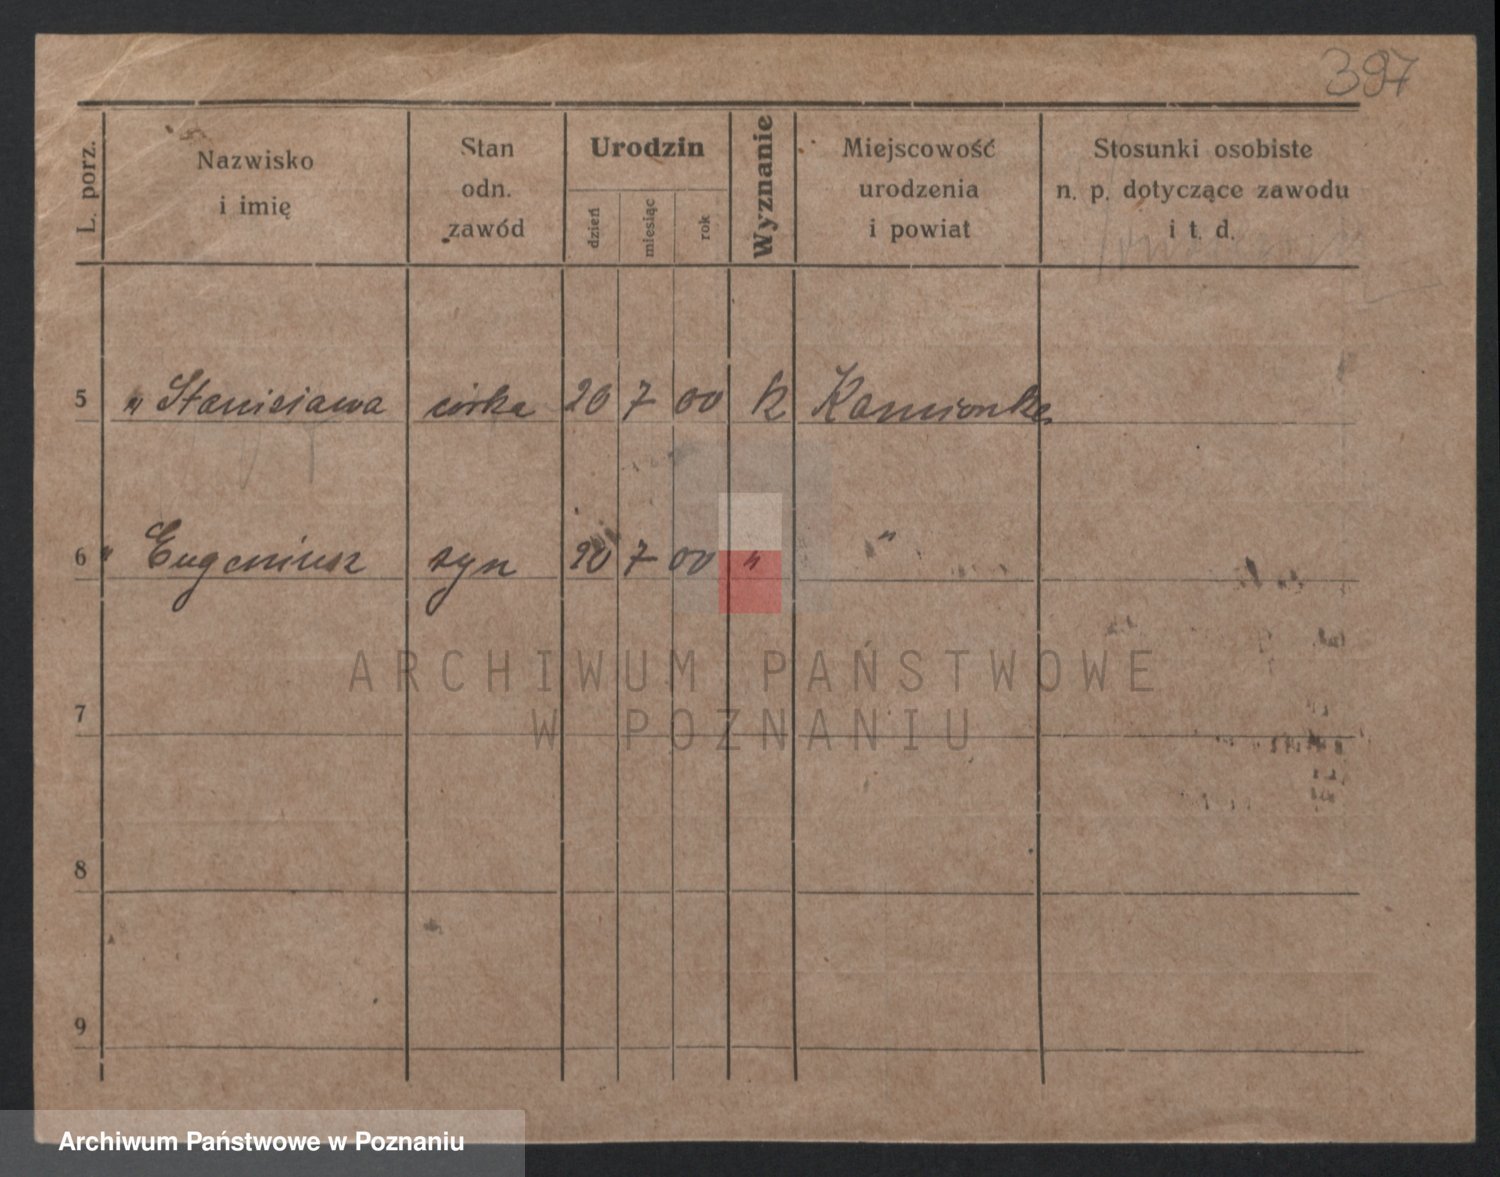 397
L. porz.
Nazwisko
i imię
Stan
odn.
zawód
Urodzin
dzień
miesiąc
rok
Wyznanie
Miejscowość
urodzenia
i powiat
Stosunki osobiste
n. p. dotyczące zawodu
i t. d.
5 " Stanisława córka 20 7 00 k Kamionka
6 " Eugeniusz syn 20 7 00 " "
7
8
9
ARCHIWUM PAŃSTWOWE
W POZNANIU
Archiwum Państwowe w Poznaniu